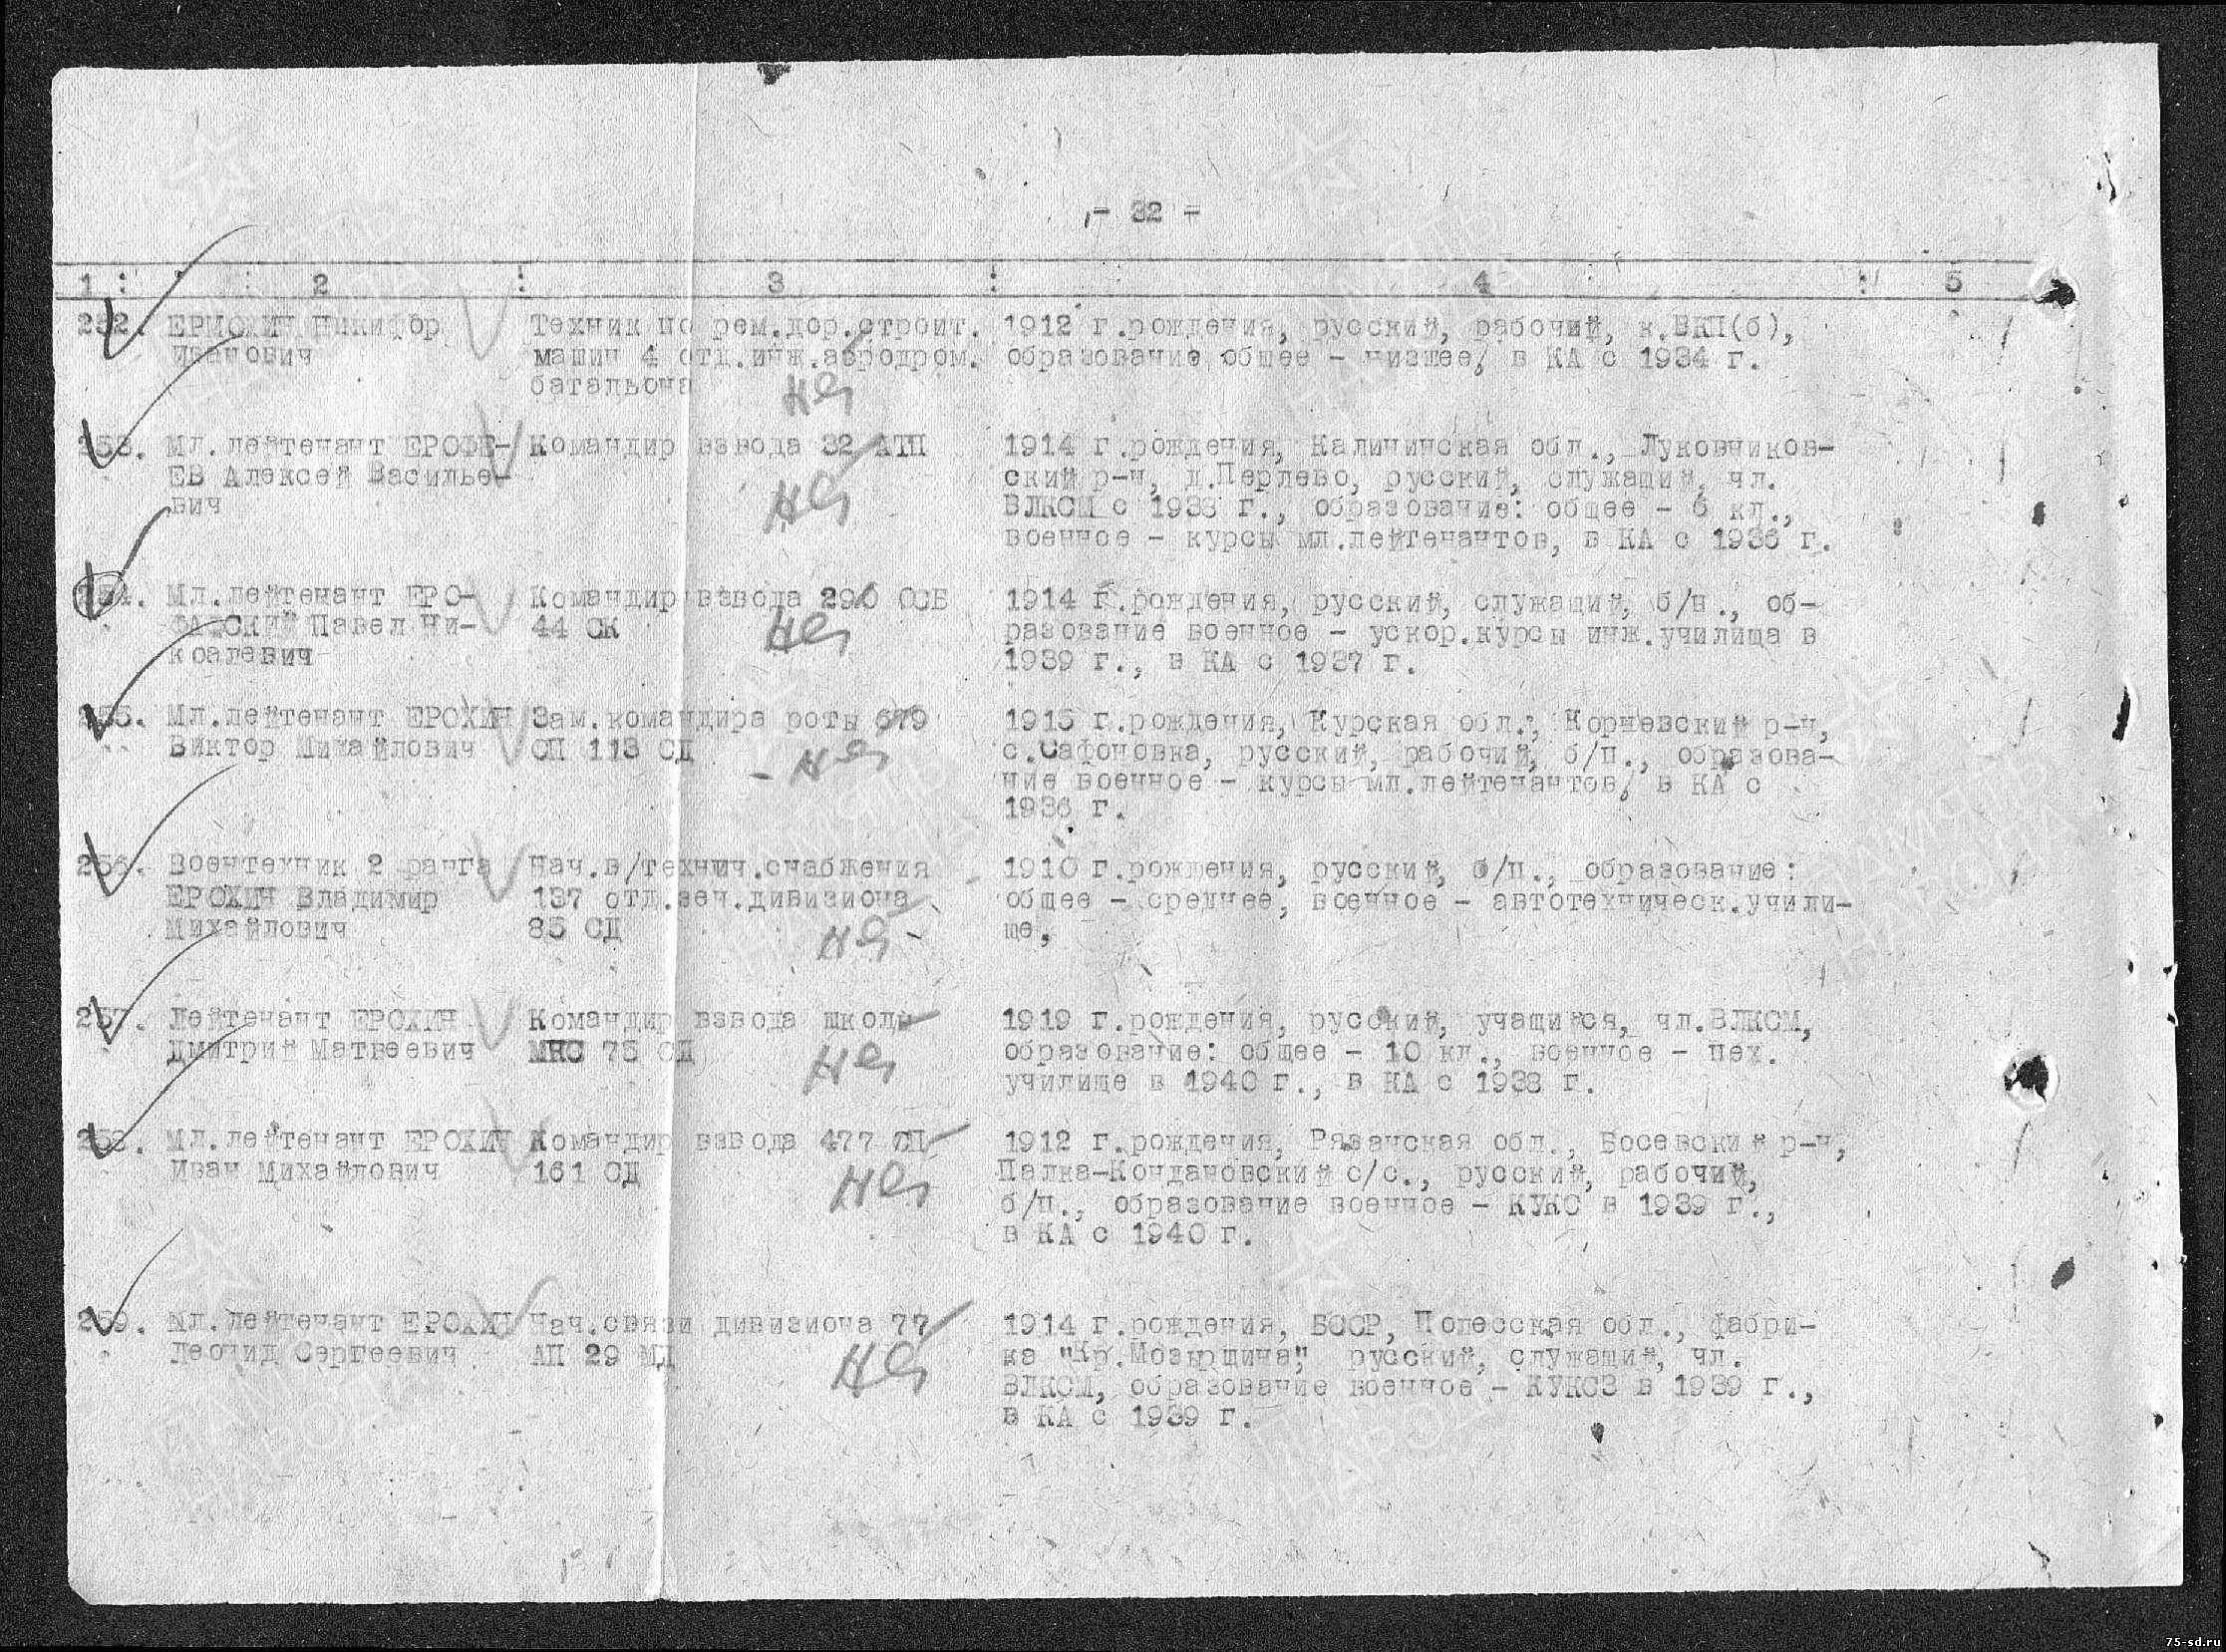 - 32 -
1 : 2 : 3 : 4 : 5
252. ЕРМОХИН Никифор Техник по рем.дор.строит. 1912 г.рождения, русский, рабочий, к.ВКП(б),
Иванович машин 4 отд.инж.аэродром. образование общее - низшее, в КА с 1934 г.
батальона
253. Мл.лейтенант ЕРОФЕ- Командир взвода 32 АТП 1914 г.рождения, Калининская обл., Луковников-
ЕВ Алексей Василье- ский р-н, д.Перлево, русский, служащий, чл.
вич ВЛКСМ с 1938 г., образование: общее - 6 кл.,
военное - курсы мл.лейтенантов, в КА с 1936 г.
254. Мл.лейтенант ЕРО- Командир взвода 290 ОСБ 1914 г.рождения, русский, служащий, б/п., об-
Павел Ни- 44 СК разование военное - ускор.курсы инж.училища в
колаевич 1939 г., в КА с 1937 г.
255. Мл.лейтенант ЕРОХИН Зам.командира роты 679 1915 г.рождения, Курская обл., Кореневский р-н,
Виктор Михайлович СП 113 СД с.Сафоновка, русский, рабочий, б/п., образова-
ние военное - курсы мл.лейтенантов, в КА с
1936 г.
256. Воентехник 2 ранга Нач.в/технич.снабжения 1910 г.рождения, русский, б/п., образование:
ЕРОХИН Владимир 137 отд.зен.дивизиона общее - среднее, военное - автотехническ.учили-
Михайлович 85 СД ще.
257. Лейтенант ЕРОХИН Командир взвода школы 1919 г.рождения, русский, учащийся, чл.ВЛКСМ,
Дмитрий Матвеевич МНС 75 СД образование: общее - 10 кл., военное - пех.
училище в 1940 г., в КА с 1938 г.
258. Мл.лейтенант ЕРОХИН Командир взвода 477 СП 1912 г.рождения, Рязанская обл., Босевский р-н,
Иван Михайлович 161 СД Палка-Кондановский с/с., русский, рабочий,
б/п., образование военное - КУКС в 1939 г.,
в КА с 1940 г.
259. Мл.лейтенант ЕРОХИН Нач.связи дивизиона 77 1914 г.рождения, БССР, Полесская обл., фабри-
Леонид Сергеевич АП 29 МД ка "Кр.Мозырщина", русский, служащий, чл.
ВЛКСМ, образование военное - КУКСЗ в 1939 г.,
в КА с 1939 г.
75-sd.ru